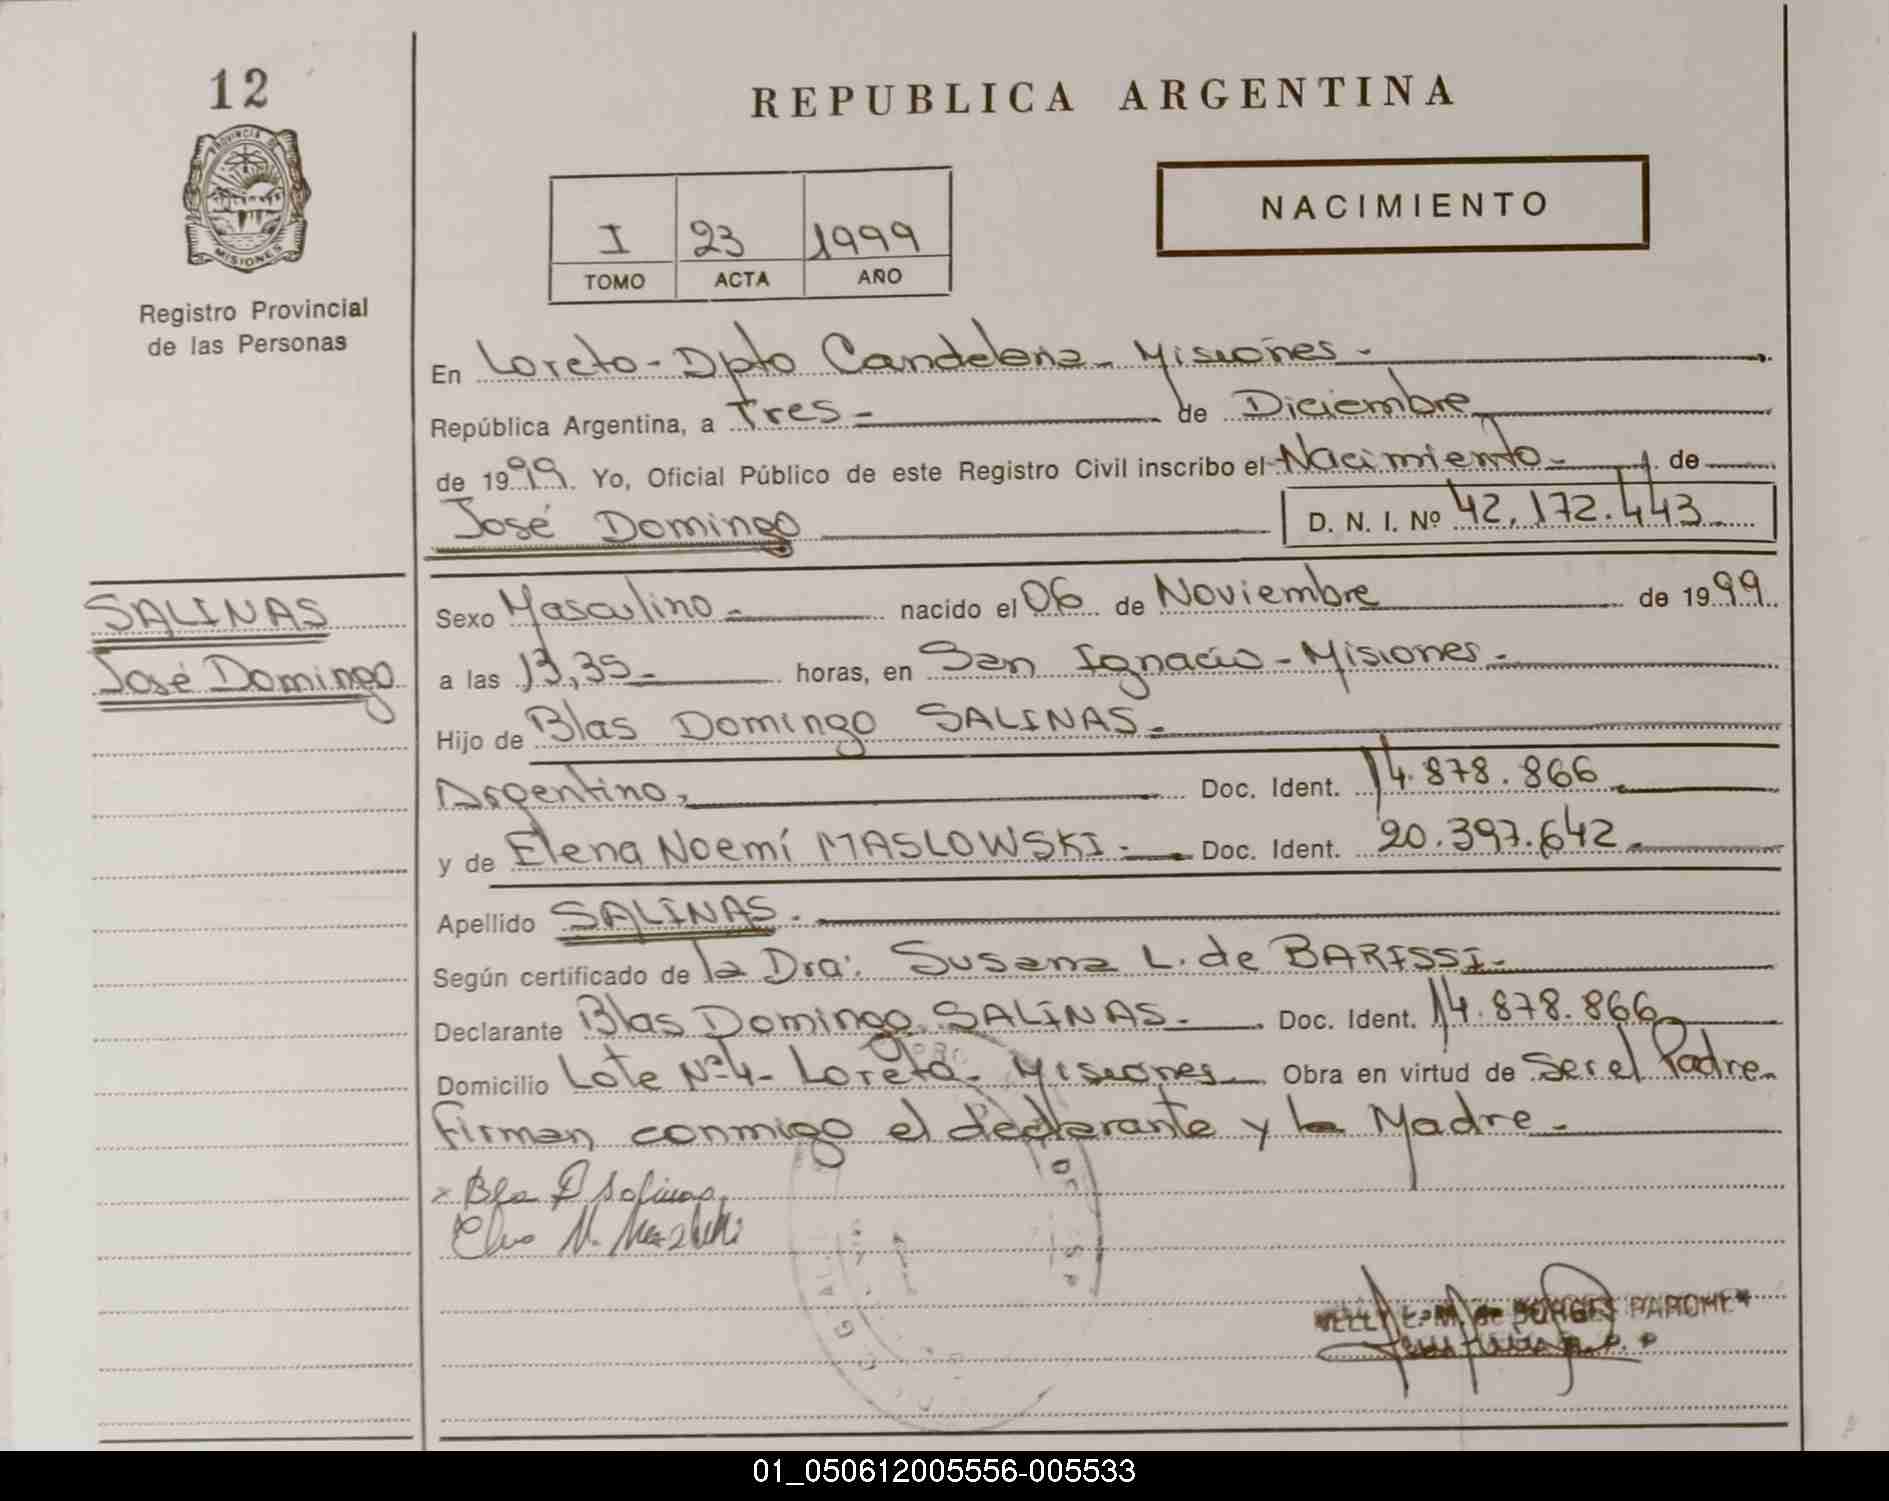 12
PROVINCIA DE
MISIONES
Registro Provincial
de las Personas
REPUBLICA ARGENTINA
I 23 1999
TOMO ACTA AÑO
NACIMIENTO
En Loreto - Dpto Candelaria - Misiones -
República Argentina, a Tres - de Diciembre
de 1999. Yo, Oficial Público de este Registro Civil inscribo el Nacimiento - de
José Domingo D. N. I. Nº 42.172.443
SALINAS
José Domingo
Sexo Masculino - nacido el 06 de Noviembre de 1999.
a las 13,35 - horas, en San Ignacio - Misiones -
Hijo de Blas Domingo SALINAS -
Argentino, Doc. Ident. 14.878.866
y de Elena Noemí MASLOWSKI - Doc. Ident. 20.397.642
Apellido SALINAS -
Según certificado de la Dra. Susana L. de BARISSI -
Declarante Blas Domingo SALINAS - Doc. Ident. 14.878.866
Domicilio Lote Nº 4 - Loreto - Misiones Obra en virtud de Ser el Padre
Firman conmigo el declarante y la Madre -
01_050612005556-005533